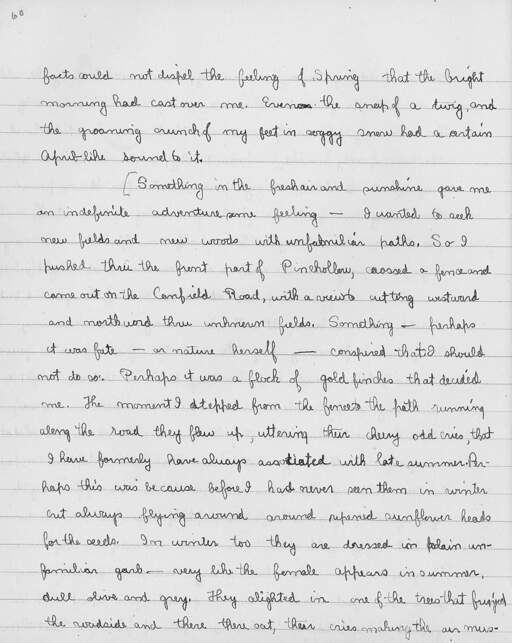 60
facts could not dispel the feeling of Spring that the bright
morning had cast over me. Even the snap of a twig, and
the groaning crunch of my feet in soggy snow had a certain
April-like sound to it.
[Something in the fresh air and sunshine gave me
an indefinite adventuresome feeling — I wanted to seek
new fields and new woods with unfamiliar paths. So I
pushed thru the front part of Pinehollow, crossed a fence and
came out on the Canfield Road, with a view to cutting westward
and northward thru unknown fields. Something — perhaps
it was fate — or nature herself — conspired that I should
not do so. Perhaps it was a flock of gold finches that decided
me. The moment I stepped from the fence to the path running
along the road they flew up, uttering their cheery odd cries, that
I have formerly have always associated with late summer. Per-
haps this was because before I had never seen them in winter
but always flying around around ripened sunflower heads
for the seeds. In winter too they are dressed in plain un-
familiar garb — very like the female appears in summer,
dull olive and grey. They alighted in one of the trees that fringed
the roadside and there there sat, their cries making the air mus-